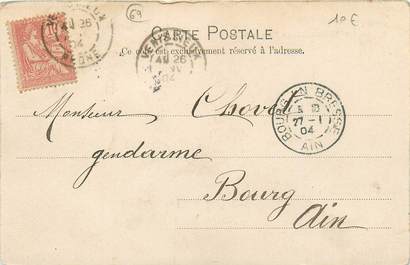 69
10€
CARTE POSTALE
Ce côté est exclusivement réservé à l'adresse.
RHONE
26
04
26
BOURG EN BRESSE
27 - 1
04
AIN
Monsieur
gendarme
Bourg
Ain